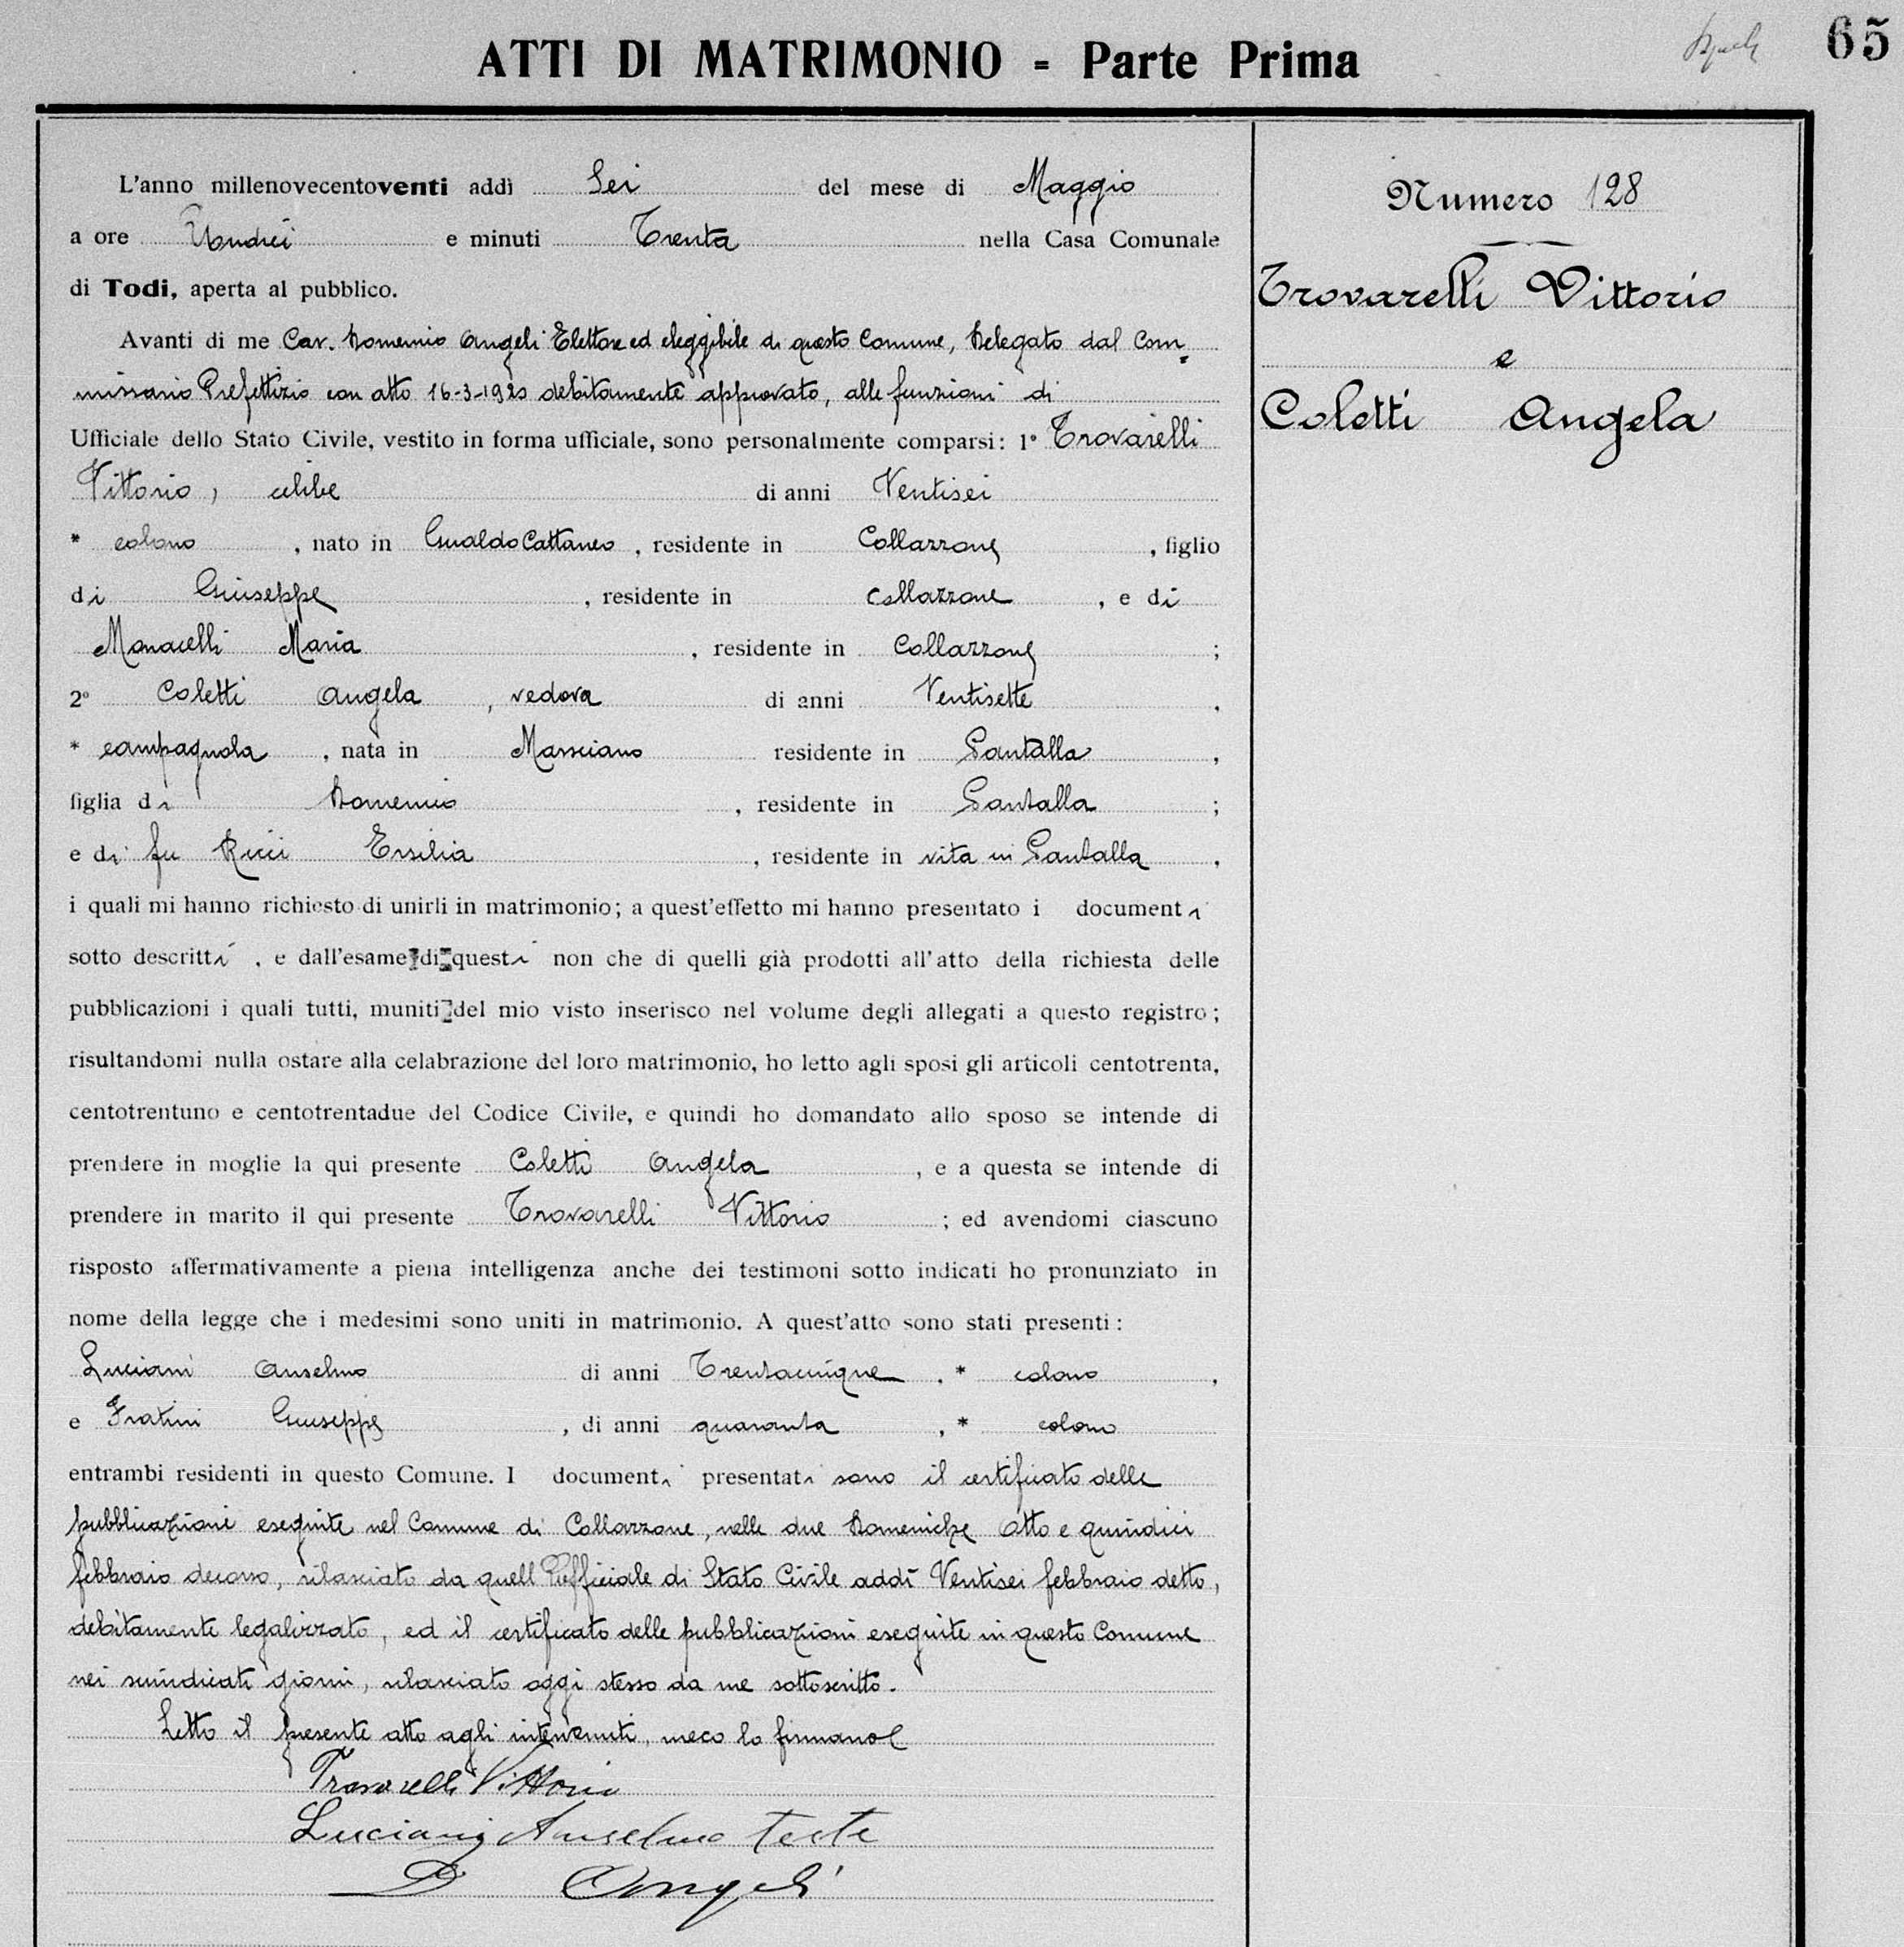 65
ATTI DI MATRIMONIO = Parte Prima
L'anno millenovecentoventi addì Sei del mese di Maggio
a ore Undici e minuti Trenta nella Casa Comunale
di Todi, aperta al pubblico.
Avanti di me Cav. Domenico Angeli Elettore ed eleggibile di questo Comune, Delegato dal Com-
missario Prefettizio con atto 16-3-1920 debitamente approvato, alle funzioni di
Ufficiale dello Stato Civile, vestito in forma ufficiale, sono personalmente comparsi: 1° Trovarelli
Vittorio, celibe di anni Ventisei
* colono, nato in Gualdo Cattaneo, residente in Collazzone, figlio
di Giuseppe, residente in Collazzone, e di
Monacelli Maria, residente in Collazzone;
2° Coletti Angela, vedova di anni Ventisette,
* campagnola, nata in Marsciano residente in Pantalla,
figlia di Domenico, residente in Pantalla;
e di fu Ricci Ersilia, residente in vita in Pantalla,
i quali mi hanno richiesto di unirli in matrimonio; a quest'effetto mi hanno presentato i documenti
sotto descritti, e dall'esame di questi non che di quelli già prodotti all'atto della richiesta delle
pubblicazioni i quali tutti, muniti del mio visto inserisco nel volume degli allegati a questo registro;
risultandomi nulla ostare alla celabrazione del loro matrimonio, ho letto agli sposi gli articoli centotrenta,
centotrentuno e centotrentadue del Codice Civile, e quindi ho domandato allo sposo se intende di
prendere in moglie la qui presente Coletti Angela, e a questa se intende di
prendere in marito il qui presente Trovarelli Vittorio; ed avendomi ciascuno
risposto affermativamente a piena intelligenza anche dei testimoni sotto indicati ho pronunziato in
nome della legge che i medesimi sono uniti in matrimonio. A quest'atto sono stati presenti:
Luciani Anselmo di anni Trentacinque, * colono,
e Fratini Giuseppe, di anni quaranta, * colono
entrambi residenti in questo Comune. I documenti presentati sono il certificato delle
pubblicazioni eseguite nel Comune di Collazzone, nelle due Domeniche Otto e quindici
febbraio decorso, rilasciato da quell'Ufficiale di Stato Civile addì Ventisei febbraio detto,
debitamente legalizzato, ed il certificato delle pubblicazioni eseguite in questo Comune
nei suindicati giorni, rilasciato oggi stesso da me sottoscritto.
Letto il presente atto agli intervenuti, meco lo firmano
Trovarelli Vittorio
Luciani Anselmo teste
D Angeli
Numero 128
Trovarelli Vittorio
e
Coletti Angela